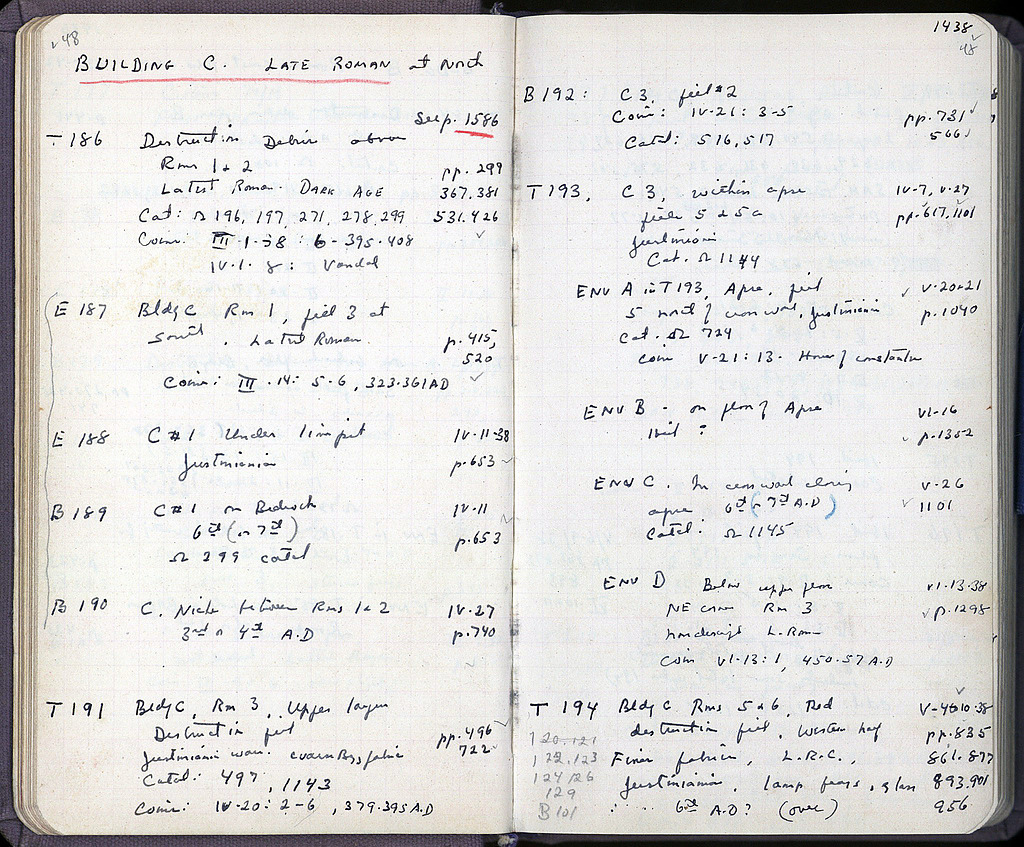 48
BUILDING C. LATE ROMAN at North
See p. 1586
T 186 Destruction Debris above
Rms 1 & 2 pp. 299
Latest Roman. DARK AGE 367.381
Cat: Ω 196, 197, 271, 278, 299 531.426
Coins: III-1-38: 6-395-408
IV-1-8: Vandal
E 187 Bldg C Rm 1, fill 3 at
South. Latest Roman. p. 415,
520
Coins: III.14: 5-6, 323-361 AD
E 188 C #1 Under limpit IV-11-38
Justinianian p. 653
B 189 C #1 on Bedrock IV-11
6th (or 7th) p. 653
Ω 299 catal
B 190 C. Niche between Rms 1 & 2 IV-27
3rd or 4th A.D p. 740
T 191 Bldg C, Rm 3, Upper layer
Destruction fill pp. 496
Justinianian ware. 722
Catal: 497, 1143
Coins: IV-20: 2-6, 379-395 A.D
1438
48
B 192: C 3, fill #2
Coins: IV-21: 3-5 pp. 731
Catal: 516, 517 566
T 193, C 3, within apse IV-7, V-27
fills 5 & 5a pp. 617, 1101
Justinianian
Cat. Ω 1144
ENV A in T 193, Apse, fill V-20-21
5 north of cross wall, Justinianian p. 1040
Cat. Ω 724
Coin V-21: 13. House of Constantine
ENV B - on floor of Apse VI-16
p. 1352
ENV C. In cross wall closing V-26
apse 6th (or 7th A.D) 1101
Catal: Ω 1145
ENV D Below upper floor VI-13-38
NE corner Rm 3 p. 1298
nondescript L. Rom
Coin VI-13: 1, 450-57 A.D
T 194 Bldg C Rms 5 & 6, Red
destruction fill, Western half pp. 835
120.121
122,123 Finer fabrics, L.R.C., 861.877
124/26 Justinianian, lamp frags, glass 893.901
129 6th A.D? (over) 956
B 101